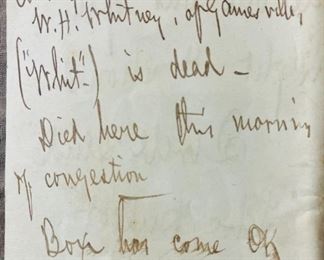 W. H. Whitney, of Gainesville,
("Whit") is dead –
Died here this morning
of congestion
Box has come OK